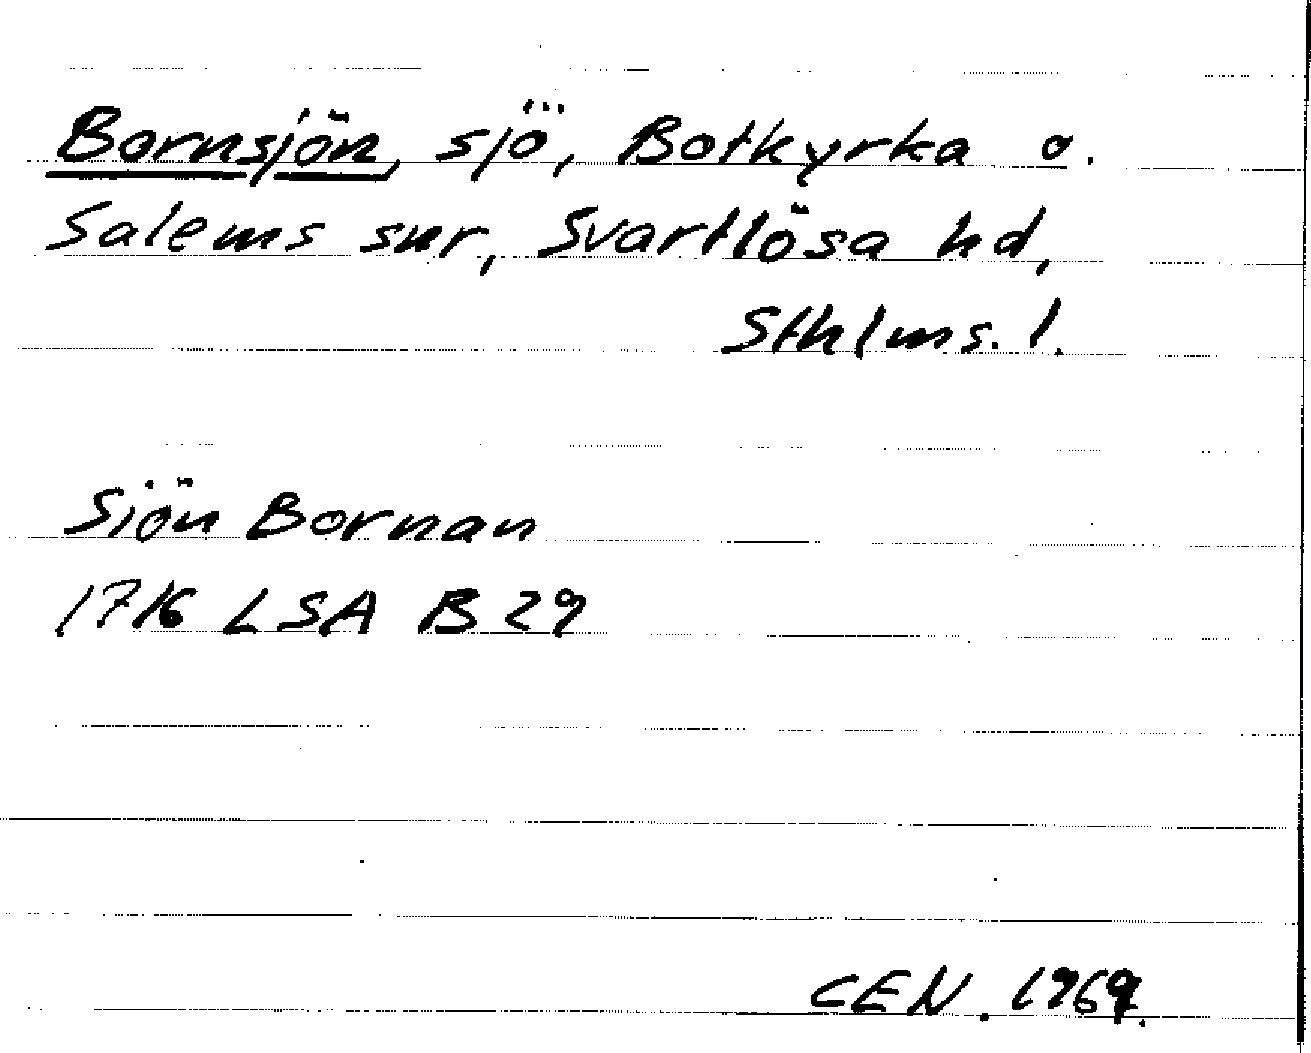 Bornsjön, sjö, Botkyrka o.
Salems snr, Svartlösa hd,
Sthlms. l.
Siön Bornan
1716 LSA B 29
CEN. 1969.